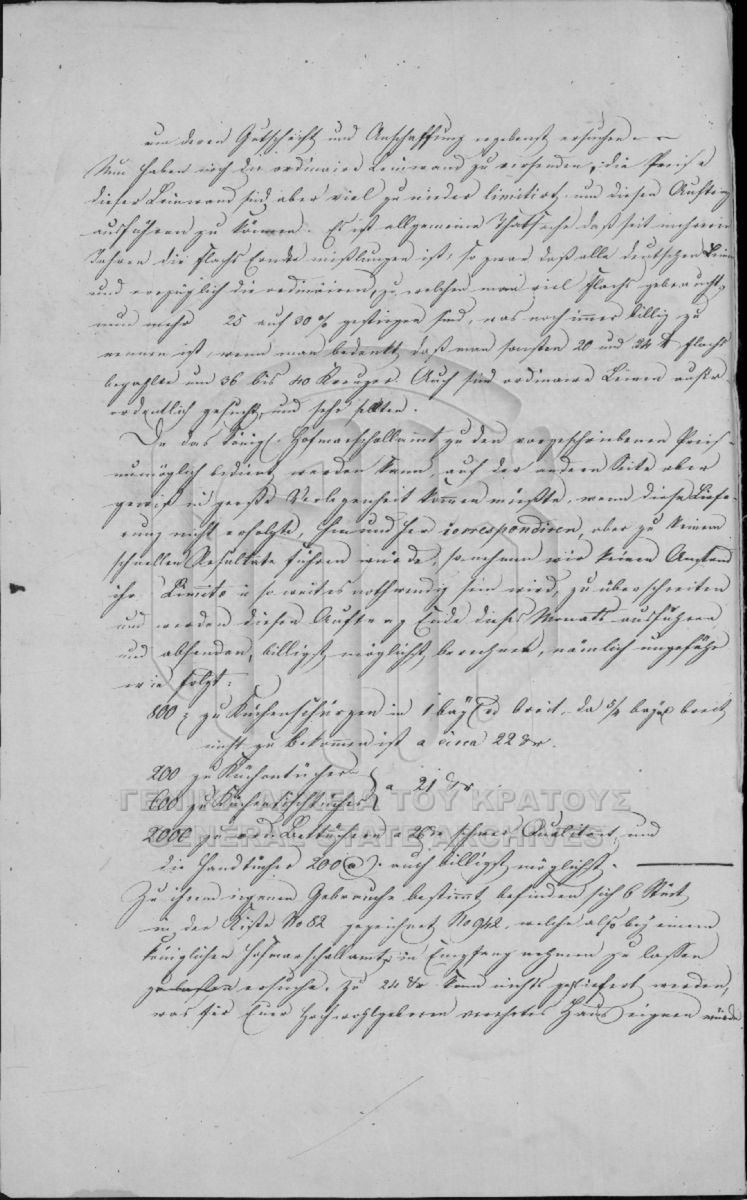 um deren Gutschrift und Anschaffung ergebenst ersuchen. —
Nun haben wir die ordinaire Leinwand zu versenden, die Preise
dieser Leinwand sind aber viel zu nieder limitirt um diesen Auftrag
ausführen zu können. Es ist allgemeine Thatsache daß seit mehreren
Jahren die Flachs Ernte mißlungen ist, so zwar daß alle deutschen Leinen
und vorzüglich die ordinairen, zu welchen man viel Flachs gebraucht,
nun mehr 25 auf 30 % gestiegen sind, was noch immer billig zu
nennen ist, wenn man bedenkt, daß man sonsten 20 und 24 x Flachs
bezahlte um 36 bis 40 Kreuzer. Auch sind ordinaire Leinen außer
ordentlich gesucht und sehr selten.
Da das königl. Hofmarschallamt zu den vorgeschriebenen Preisen
unmöglich bedient werden kann, auf der andern Seite aber
gewiß in große Verlegenheit kommen müßte, wenn diese Liefe-
rung nicht erfolgte, hin und her correspondiren, aber zu keinem
schnellen Resultate führen würde, so nehmen wir keinen Anstand
ihr Limito in so weit es nothwendig sein wird, zu überschreiten
und werden diesen Auftrag Ende dieses Monats ausführen
und absenden, billigst möglichst berechnen, nämlich ungefähr
wie folgt:
800 zu Küchenschürzen in 1 bay breit, da 5/4 bay breit
nicht zu bekommen ist a circa 22 xr.
200 zu Küchentücher
600 zu Küchentischtücher } a 21 xr
ΓΕΝΙΚΑ ΑΡΧΕΙΑ ΤΟΥ ΚΡΑΤΟΥΣ
2000 zu ord. Bettüchern a 26 xr schwere Qualitaet, und
GENERAL STATE ARCHIVES
die Handtücher 200 auch billigst möglichst. —
Zu ihrem eigenen Gebrauche bestimmt befinden sich 6 Stück
in der Kiste No 82 gezeichnet No 942, welche also bey einem
königlichen Hofmarschallamte in Empfang nehmen zu lassen
ersuche. Zu 24 xr kann nichts geliefert werden,
was für Euer Hochwohlgeboren verehrtes Haus eignen würde